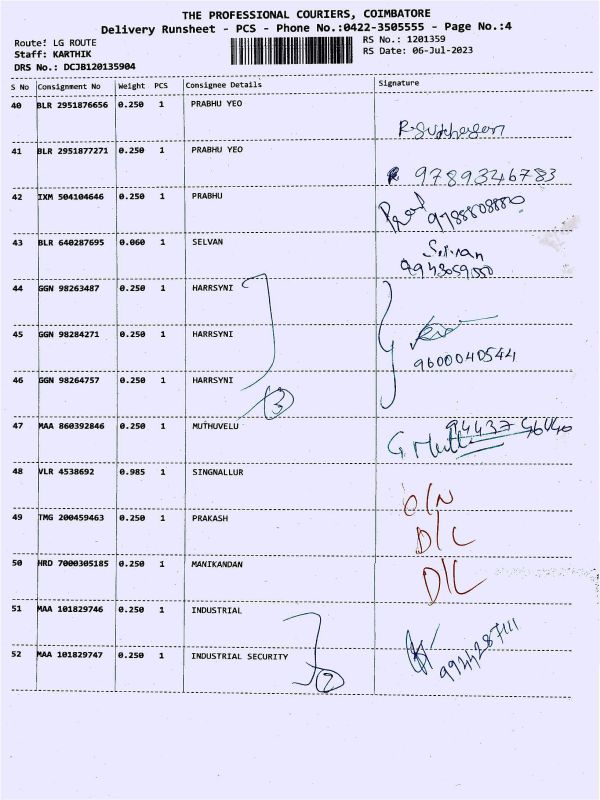 THE PROFESSIONAL COURIERS, COIMBATORE
Delivery Runsheet - PCS - Phone No.:0422-3505555 - Page No.:4
Route: LG ROUTE
RS No.: 1201359
Staff: KARTHIK
RS Date: 06-Jul-2023
DRS No.: DCJB120135904
S No Consignment No Weight PCS Consignee Details Signature
40 BLR 2951876656 0.250 1 PRABHU YEO
41 BLR 2951877271 0.250 1 PRABHU YEO
9789346783
42 IXM 504104646 0.250 1 PRABHU
43 BLR 640287695 0.060 1 SELVAN
Selvan
44 GGN 98263487 0.250 1 HARRSYNI
45 GGN 98284271 0.250 1 HARRSYNI
9600040544
46 GGN 98264757 0.250 1 HARRSYNI
3
47 MAA 860392846 0.250 1 MUTHUVELU
48 VLR 4538692 0.985 1 SINGNALLUR
O/N
49 TMG 200459463 0.250 1 PRAKASH
D/L
50 HRD 7000305185 0.250 1 MANIKANDAN
D/L
51 MAA 101829746 0.250 1 INDUSTRIAL
52 MAA 101829747 0.250 1 INDUSTRIAL SECURITY
2